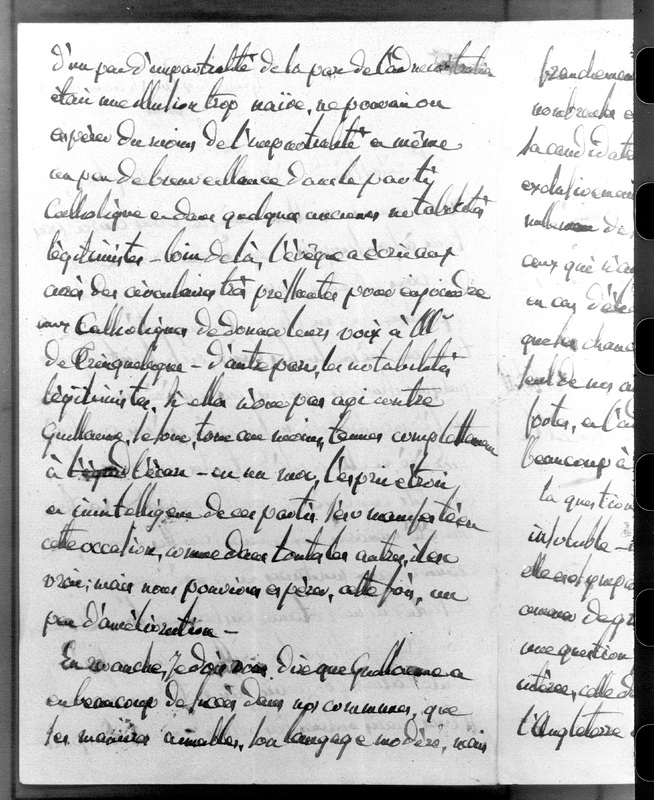 d'un peu d'impartialité de la part de l'administration
était une illusion trop naïve, ne pouvait on
espérer du moins de l'impartialité et même
un peu de bienveillance dans le parti
Catholique et dans quelques anciennes notabilités
légitimistes - loin de là, l'évêque a écrit aux
curés des circulaires très pressantes pour enjoindre
aux Catholiques de donner leurs voix à Mr
de Trinquelague - d'autre part, les notabilités
légitimistes, si elles n'ont pas agi contre
Guillaume, se sont, tout au moins, tenues complettement
à l'écart - en un mot, l'esprit étroit
et inintelligent de ces partis s'est manifesté en
cette occasion, comme dans toutes les autres, il est
vrai; mais nous pouvions espérer, cette fois, un
peu d'amélioration -
En revanche, je dois vous dire que Guillaume a
eu beaucoup de succès dans nos communes, que
ses manières aimables, son langage modéré, mais
franchement
nombreuses
la candidat
exclusivement
de
ceux qui
en cas d'
quelques chanc
tent de nos
fortes, et l'
beaucoup à
la question
insoluble -
elle est
comme de
une question
intérêt, celle d
l'Angleterre